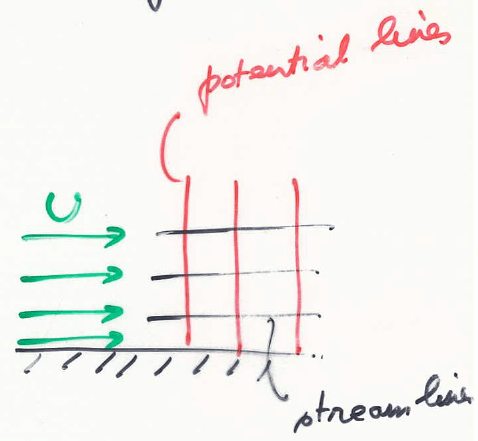 potential lines
U
stream lines